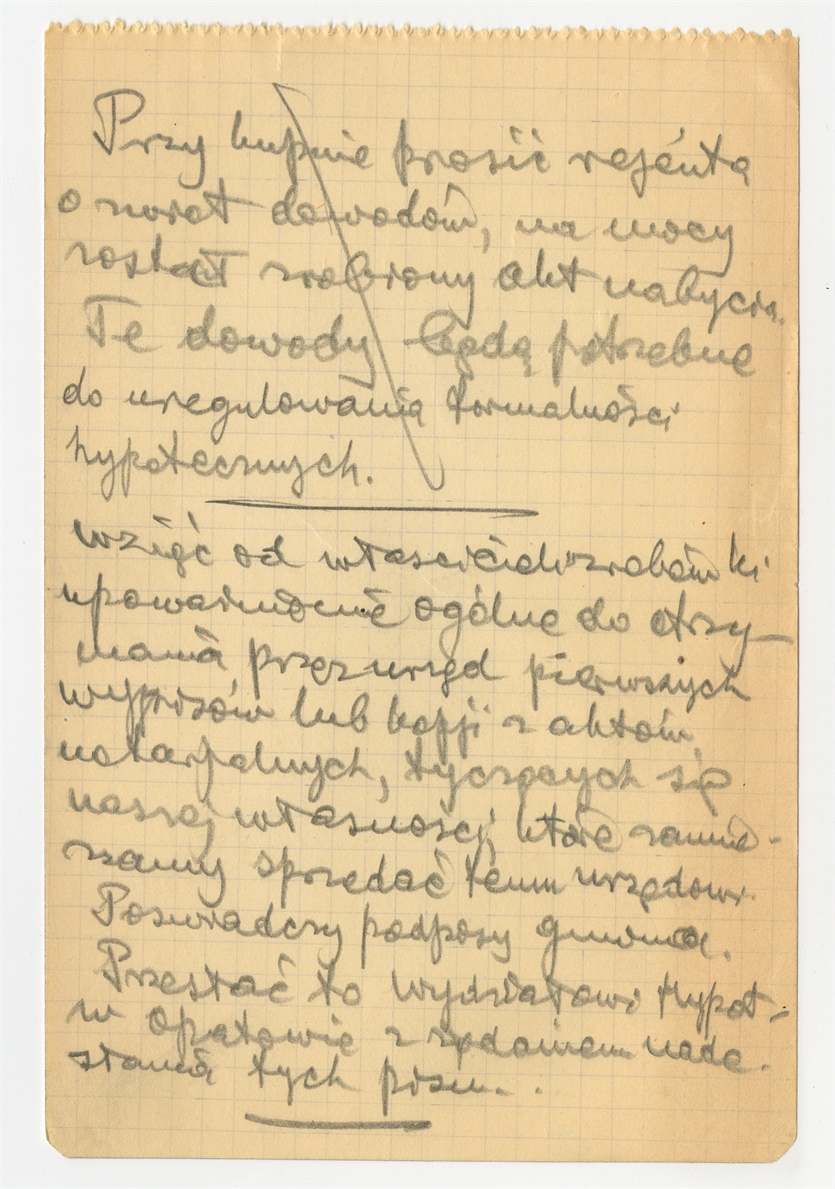 Przy kupnie prosić rejenta
o zwrot dowodów, na mocy
został zrobiony akt nabycia.
Te dowody będą potrzebne
do uregulowania formalności
hypotecznych.
wziąć od właścicieli
upoważnienie ogólne do otrzy-
mania przez urząd pierwszych
wypisów lub kopji z aktów
notarjalnych, tyczących się
naszej własności, które zamie-
rzamy sprzedać temu urzędowi.
Poświadczy podpisy gmina.
Przesłać to wydziałowi Hypot-
w Opatowie z żądaniem nade-
słania tych pism.